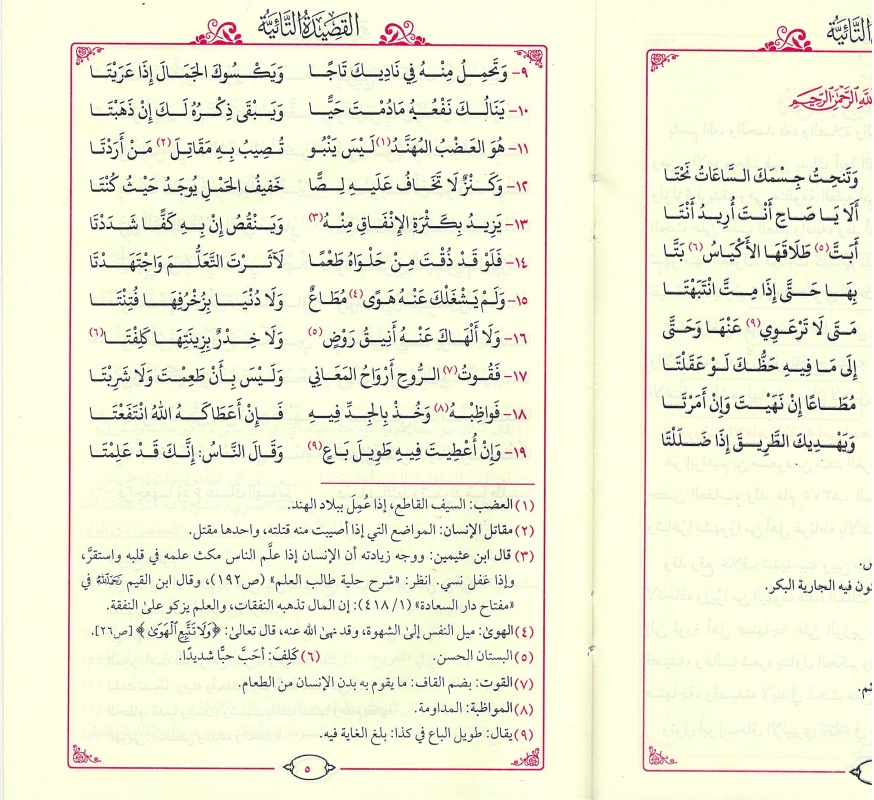 التَّائِيَّة
اللَّهِ الرَّحْمَنِ الرَّحِيمِ
وَتَنْحِتُ جِسْمَكَ السَّاعَاتُ نَحْتَا
أَلَا يَا صَاحِ أَنْتَ أُرِيدُ أَنْتَا
أَبَتَّ(٥) طَلَاقَهَا الأَكْيَاسُ(٦) بَتَّا
بِهَا حَتَّى إِذَا مِتَّ انْتَبَهْتَا
مَتَى لَا تَرْعَوِي(٩) عَنْهَا وَحَتَّى
إِلَى مَا فِيهِ حَظُّكَ لَوْ عَقَلْتَا
مُطَاعًا إِنْ نَهَيْتَ وَإِنْ أَمَرْتَا
وَيَهْدِيكَ الطَّرِيقَ إِذَا ضَلَلْتَا
فيه الجارية البكر.
القَصِيدَةُ التَّائِيَّة
٩- وَتَحْمِلُ مِنْهُ فِي نَادِيكَ تَاجًا وَيَكْسُوكَ الجَمَالَ إِذَا عَرَيْتَا
١٠- يَنَالُكَ نَفْعُهُ مَادُمْتَ حَيًّا وَيَبْقَى ذِكْرُهُ لَكَ إِنْ ذَهَبْتَا
١١- هُوَ العَضْبُ المُهَنَّدُ(١) لَيْسَ يَنْبُو تُصِيبُ بِهِ مَقَاتِلَ(٢) مَنْ أَرَدْتَا
١٢- وَكَنْزٌ لَا تَخَافُ عَلَيْهِ لِصًّا خَفِيفُ الحَمْلِ يُوجَدُ حَيْثُ كُنْتَا
١٣- يَزِيدُ بِكَثْرَةِ الإِنْفَاقِ مِنْهُ(٣) وَيَنْقُصُ إِنْ بِهِ كَفًّا شَدَدْتَا
١٤- فَلَوْ قَدْ ذُقْتَ مِنْ حَلْوَاهُ طَعْمًا لَآثَرْتَ التَّعَلُّمَ وَاجْتَهَدْتَا
١٥- وَلَمْ يَشْغَلْكَ عَنْهُ هَوًى(٤) مُطَاعٌ وَلَا دُنْيَا بِزُخْرُفِهَا فُتِنْتَا
١٦- وَلَا أَلْهَاكَ عَنْهُ أَنِيقُ رَوْضٍ(٥) وَلَا خِدْرٌ بِزِينَتِهَا كَلِفْتَا(٦)
١٧- فَقُوتُ(٧) الرُّوحِ أَرْوَاحُ المَعَانِي وَلَيْسَ بِأَنْ طَعِمْتَ وَلَا شَرِبْتَا
١٨- فَوَاظِبْهُ(٨) وَخُذْ بِالجِدِّ فِيهِ فَإِنْ أَعْطَاكَهُ اللهُ انْتَفَعْتَا
١٩- وَإِنْ أُعْطِيتَ فِيهِ طَوِيلَ بَاعٍ(٩) وَقَالَ النَّاسُ: إِنَّكَ قَدْ عَلِمْتَا
(١) العضب: السيف القاطع، إذا عُمِلَ ببلاد الهند.
(٢) مقاتل الإنسان: المواضع التي إذا أصيبت منه قتلته، واحدها مقتل.
(٣) قال ابن عثيمين: ووجه زيادته أن الإنسان إذا علَّم الناس مكث علمه في قلبه واستقرَّ،
وإذا غفل نسي. انظر: «شرح حلية طالب العلم» (ص١٩٢)، وقال ابن القيم رَحِمَهُ اللَّهُ في
«مفتاح دار السعادة» (١/ ٤١٨): إن المال تذهبه النفقات، والعلم يزكو على النفقة.
(٤) الهوى: ميل النفس إلى الشهوة، وقد نهى الله عنه، قال تعالى: ﴿وَلَا تَتَّبِعِ الْهَوَى﴾ [ص٢٦].
(٥) البستان الحسن. (٦) كَلِفَ: أحَبَّ حبًّا شديدًا.
(٧) القوت: بضم القاف: ما يقوم به بدن الإنسان من الطعام.
(٨) المواظبة: المداومة.
(٩) يقال: طويل الباع في كذا: بلغ الغاية فيه.
٥